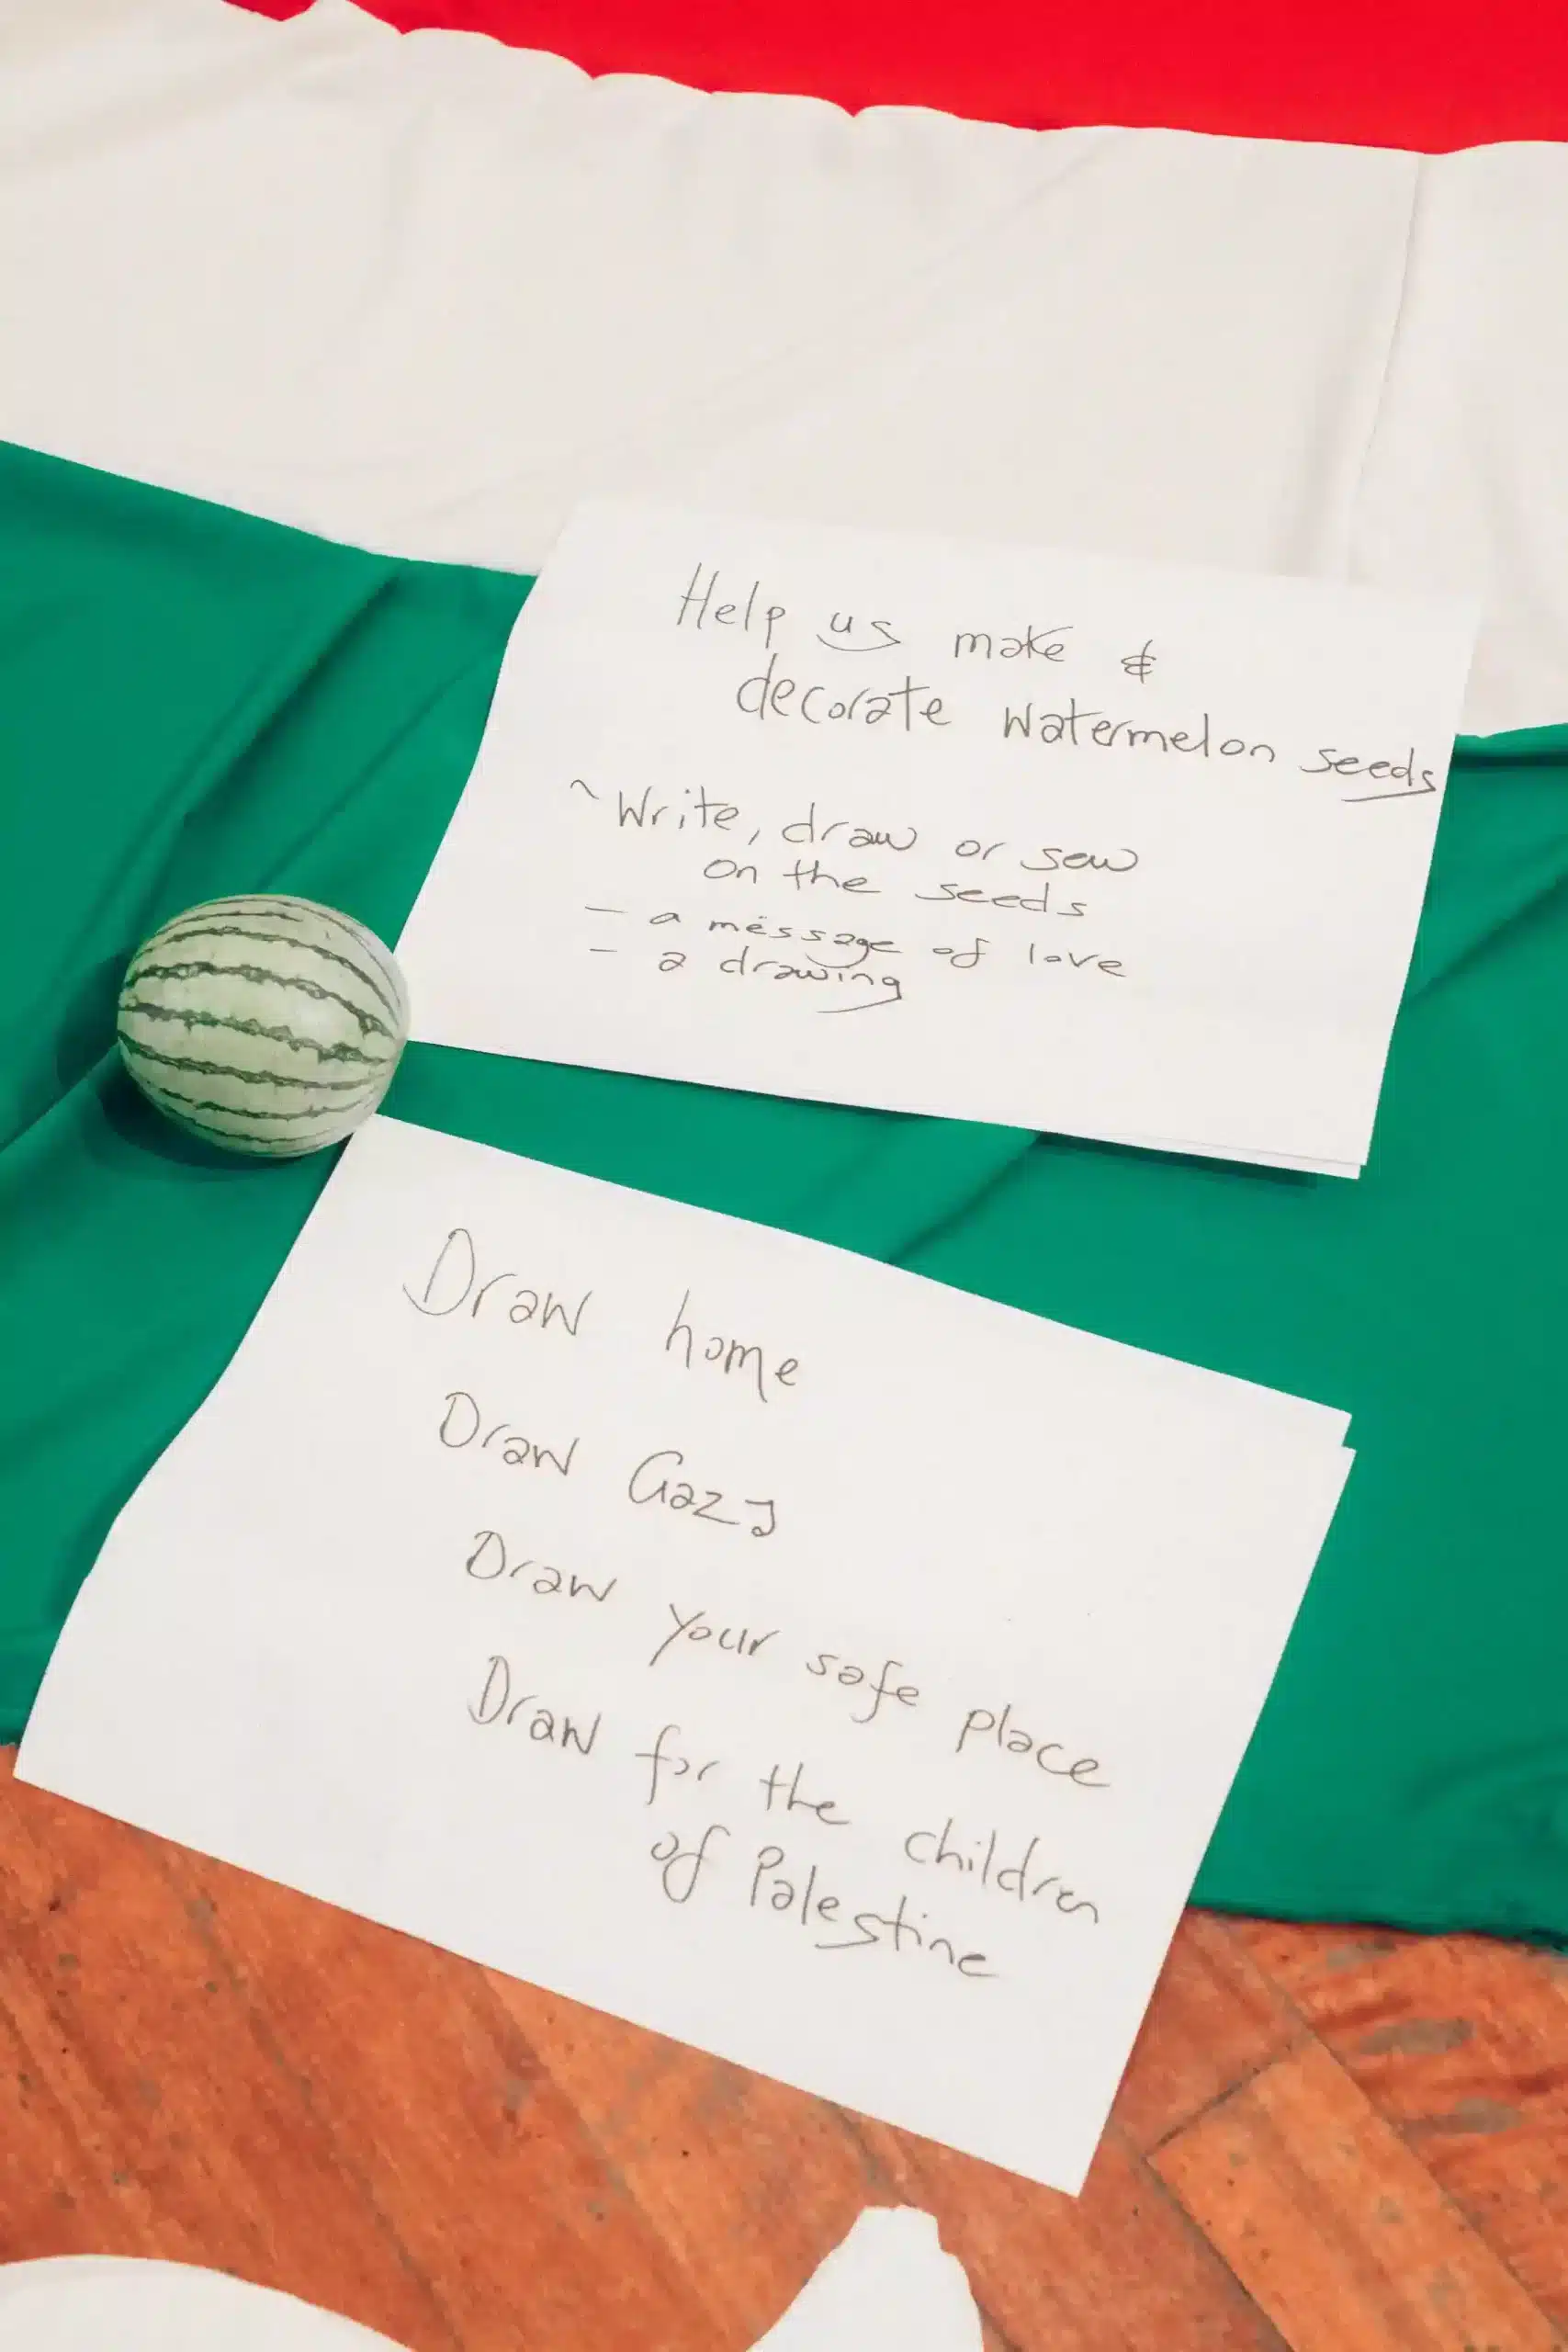 Help us make &
decorate watermelon seeds
~ Write, draw or sew
on the seeds
- a message of love
- a drawing
Draw home
Draw Gaza
Draw your safe place
Draw for the children
of Palestine